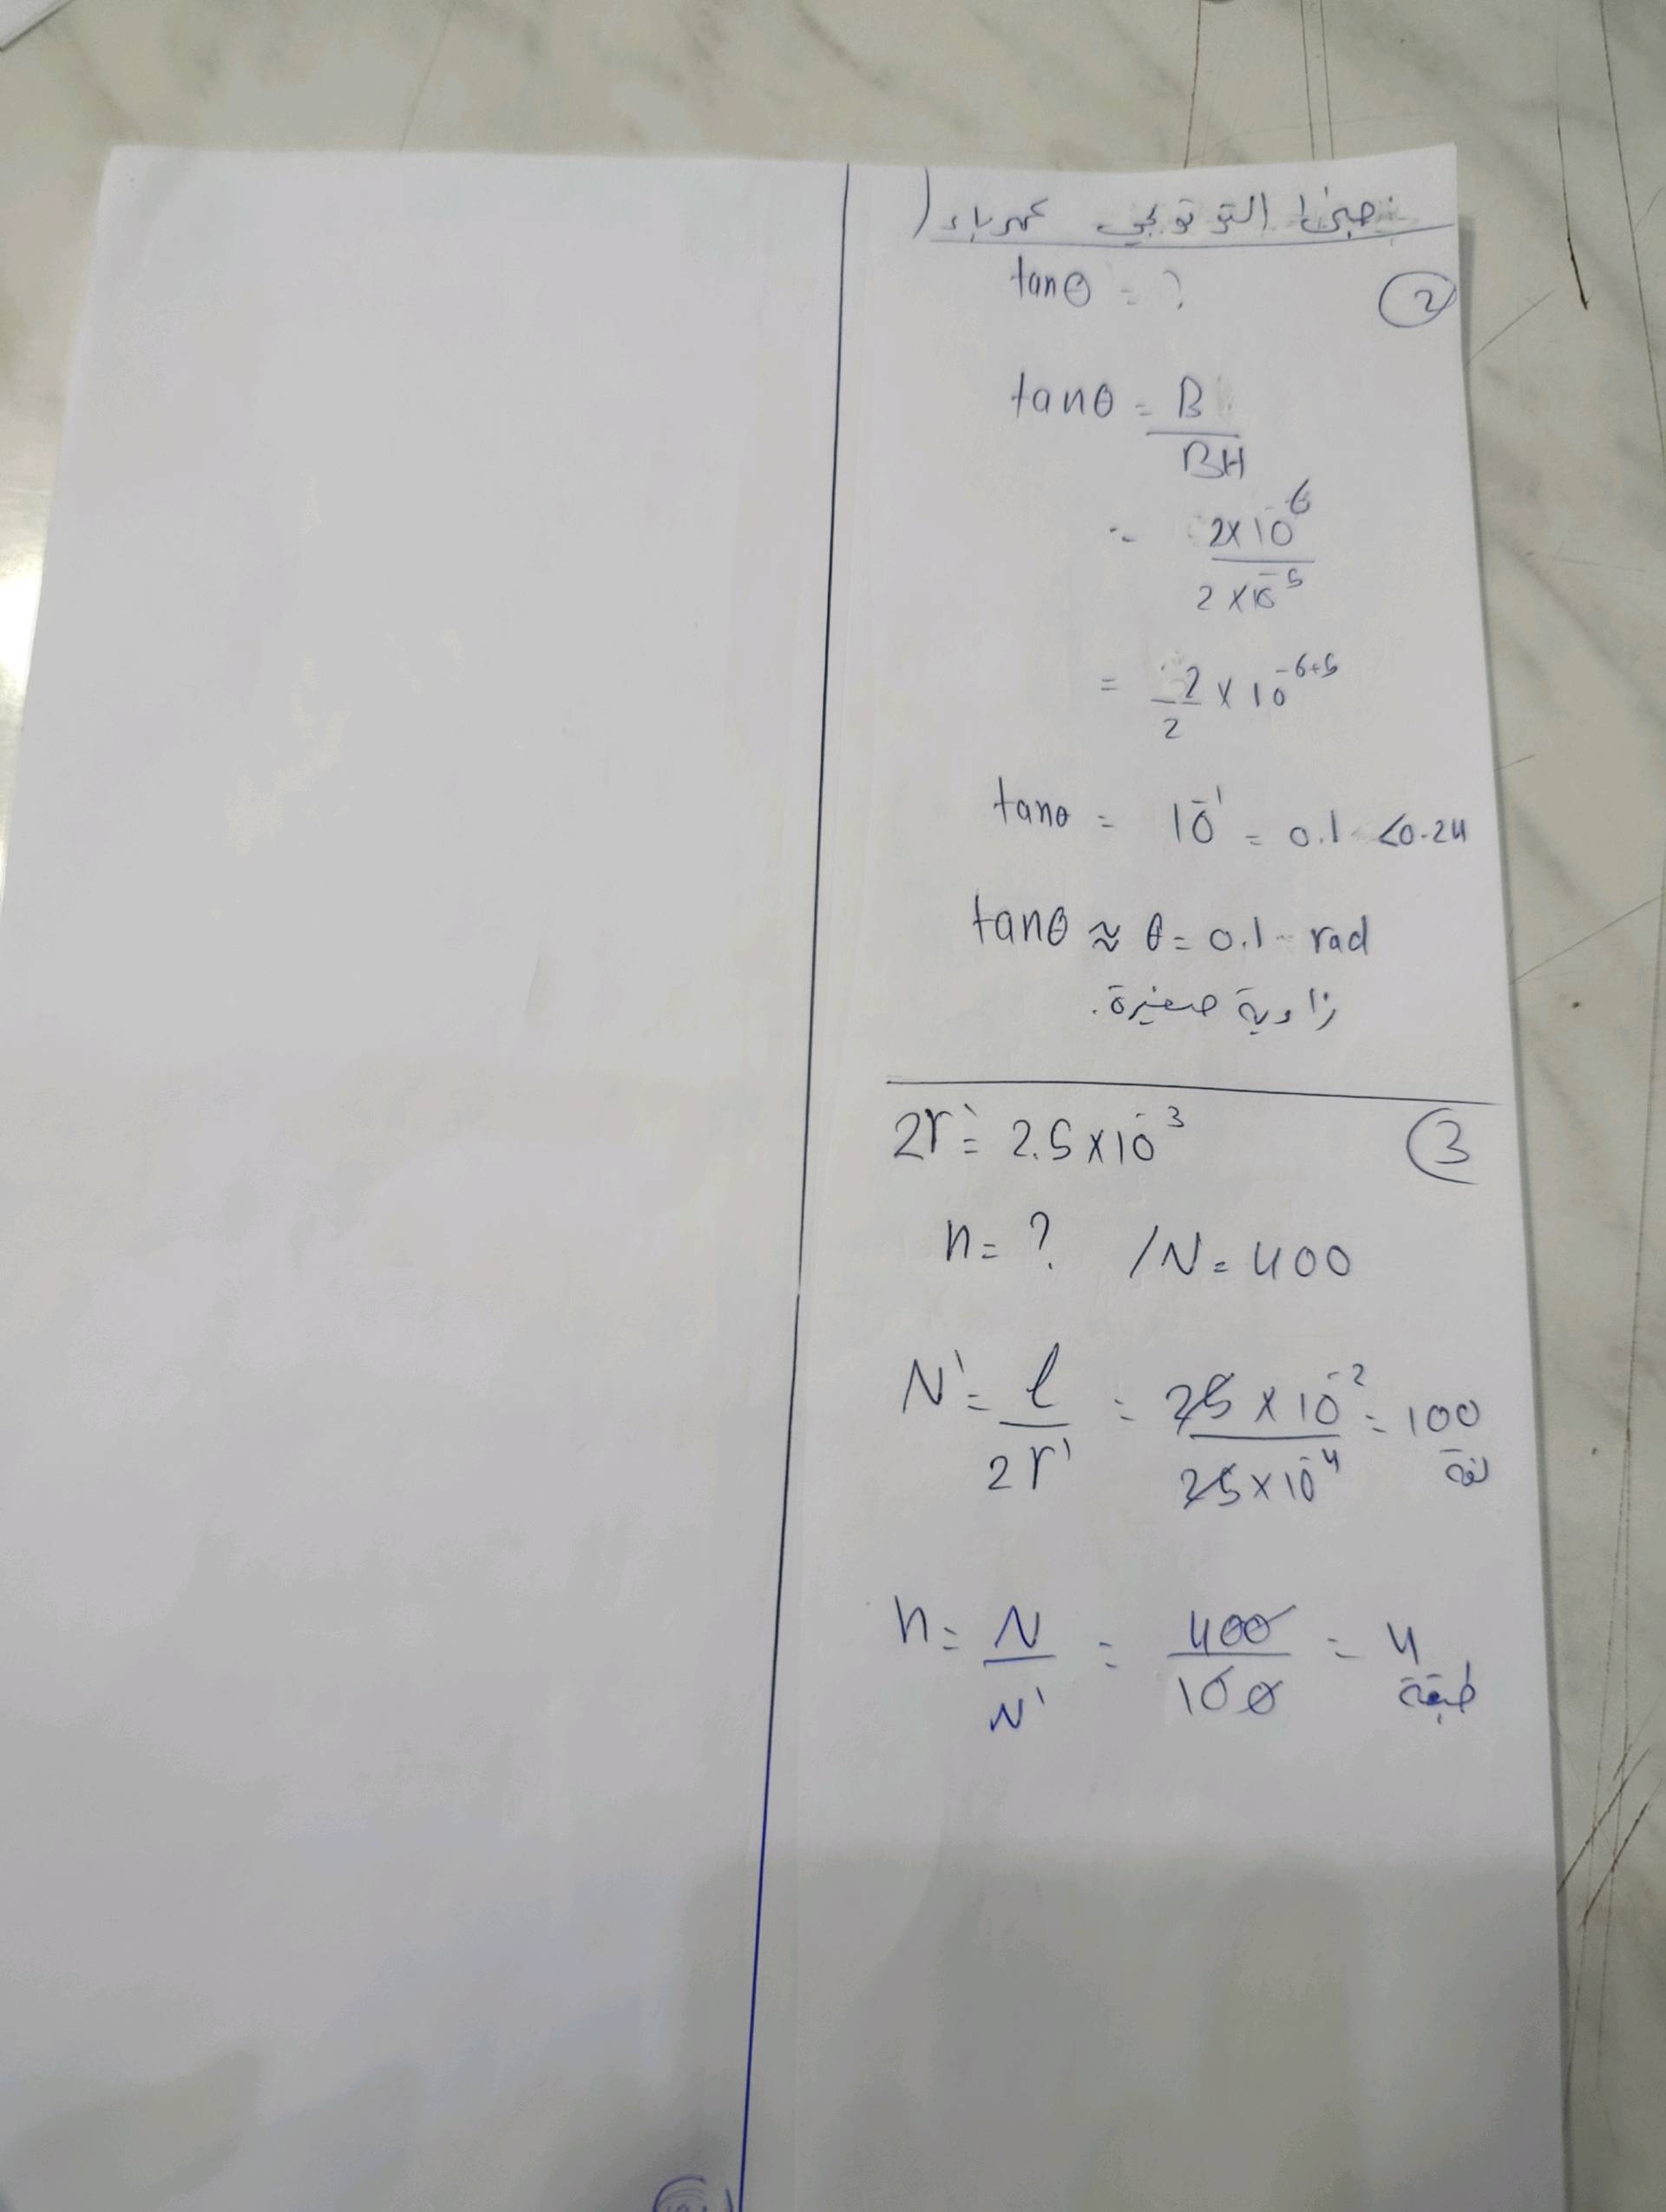 التوتجي كهرباء
tanθ = ?
②
tanθ = B / BH
= 2×10^-6 / 2×10^-5
= 2/2 × 10^-6+5
tanθ = 10^-1 = 0.1 < 0.24
tanθ ≈ θ = 0.1 rad
زاوية صغيرة.
2r' = 2.5×10^-3
③
n = ? / N = 400
N' = l / 2r' = 25×10^-2 / 25×10^-4 = 100 لفة
n = N / N' = 400 / 100 = 4 طبقة